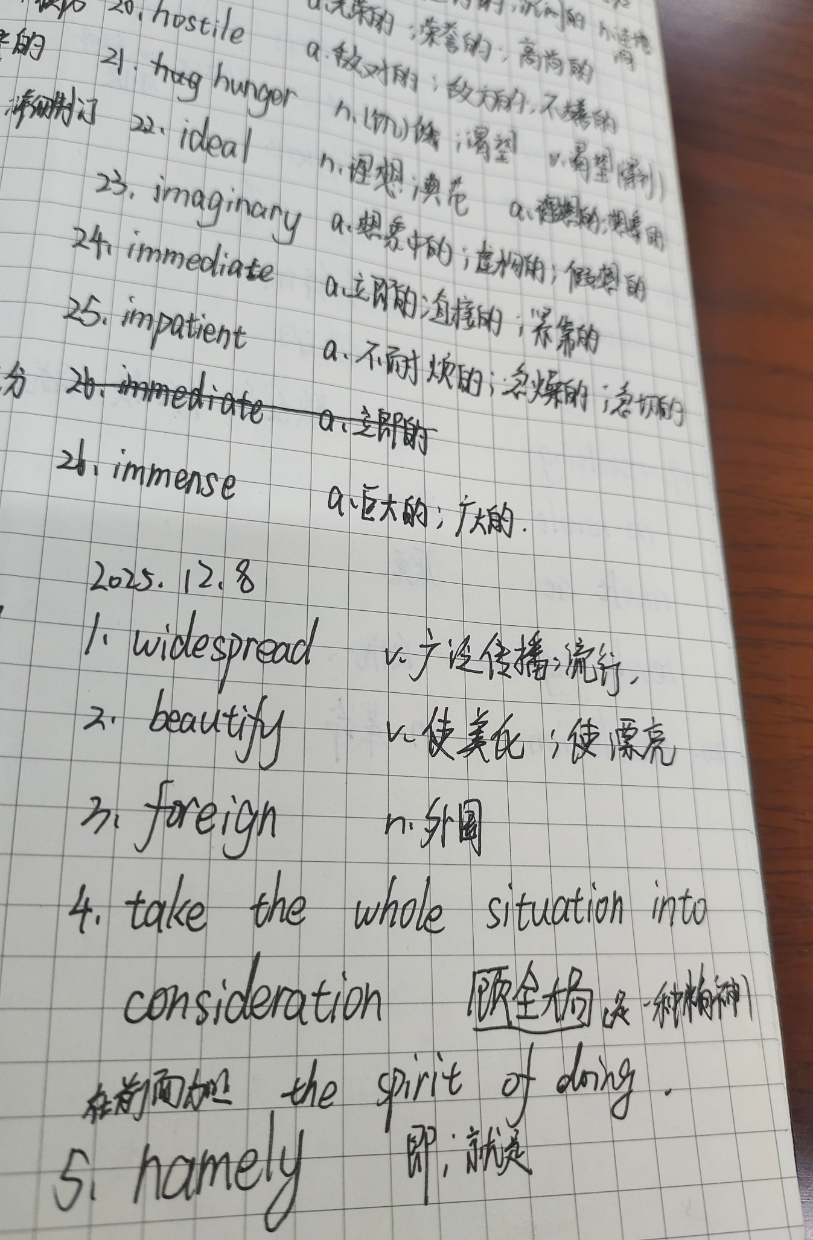 20. hostile a.敌对的;敌方的;不友善的
21. hunger n.(饥)饿;渴望 v.渴望(得到)
22. ideal n.理想;典范 a.理想的;想象的
23. imaginary a.想象中的;虚构的;假想的
24. immediate a.立即的;直接的;紧靠的
25. impatient a.不耐烦的;急燥的;急切的
26. immediate a.立即的
26. immense a.巨大的;广大的.
2025.12.8
1. widespread v.广泛传播;流行.
2. beautify v.使美化;使漂亮
3. foreign n.外国
4. take the whole situation into
consideration 顾全大局(是一种精神)
在前面加 the spirit of doing.
5. namely 即;就是